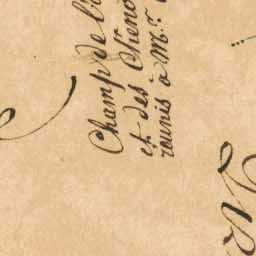 Champ de l'
et des Cheno
réunis à M.r